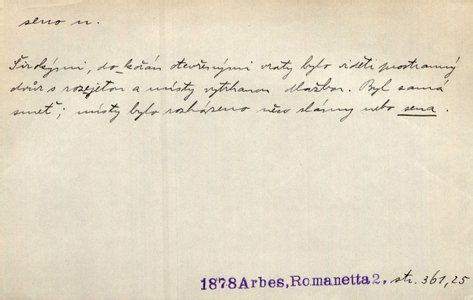 seno n.
Širokými, do kořán otevřenými vraty bylo viděti prostranný
dvůr s rozejetou a místy vytrhanou dlažbou. Byl samá
smeť; místy bylo rozházeno něco slámy nebo sena.
1878 Arbes, Romanetta 2, str. 361,25